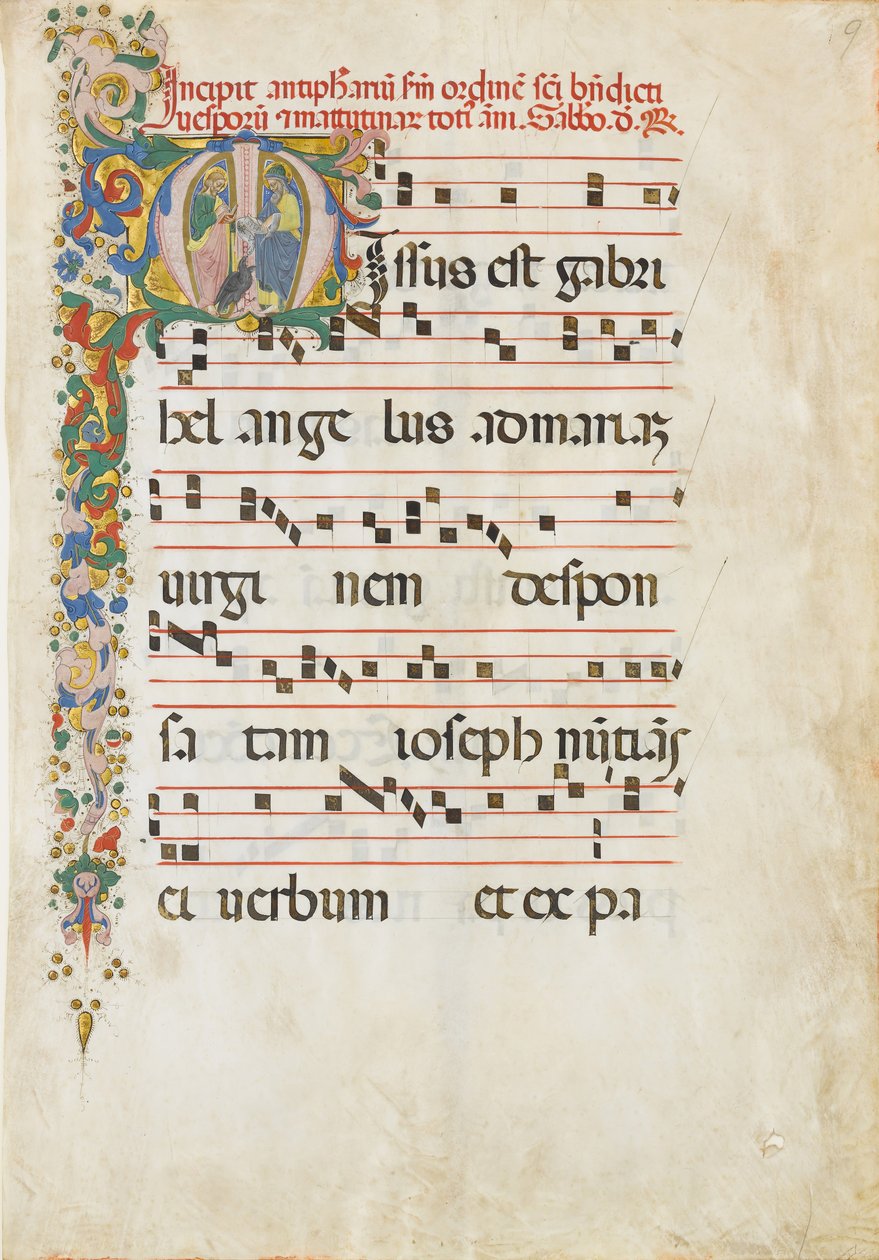 9
Incipit antiphariū scḋm ordinē scī bn̄dicti
uesporū ⁊ mattutinaꝝ totī ām. Sabbo. ꝺ. R.
Missus est gabri
hel ange lus ad mariaꝫ
uirgi nem despon
sa tam ioseph nūtiās
ei uerbum et ex pa